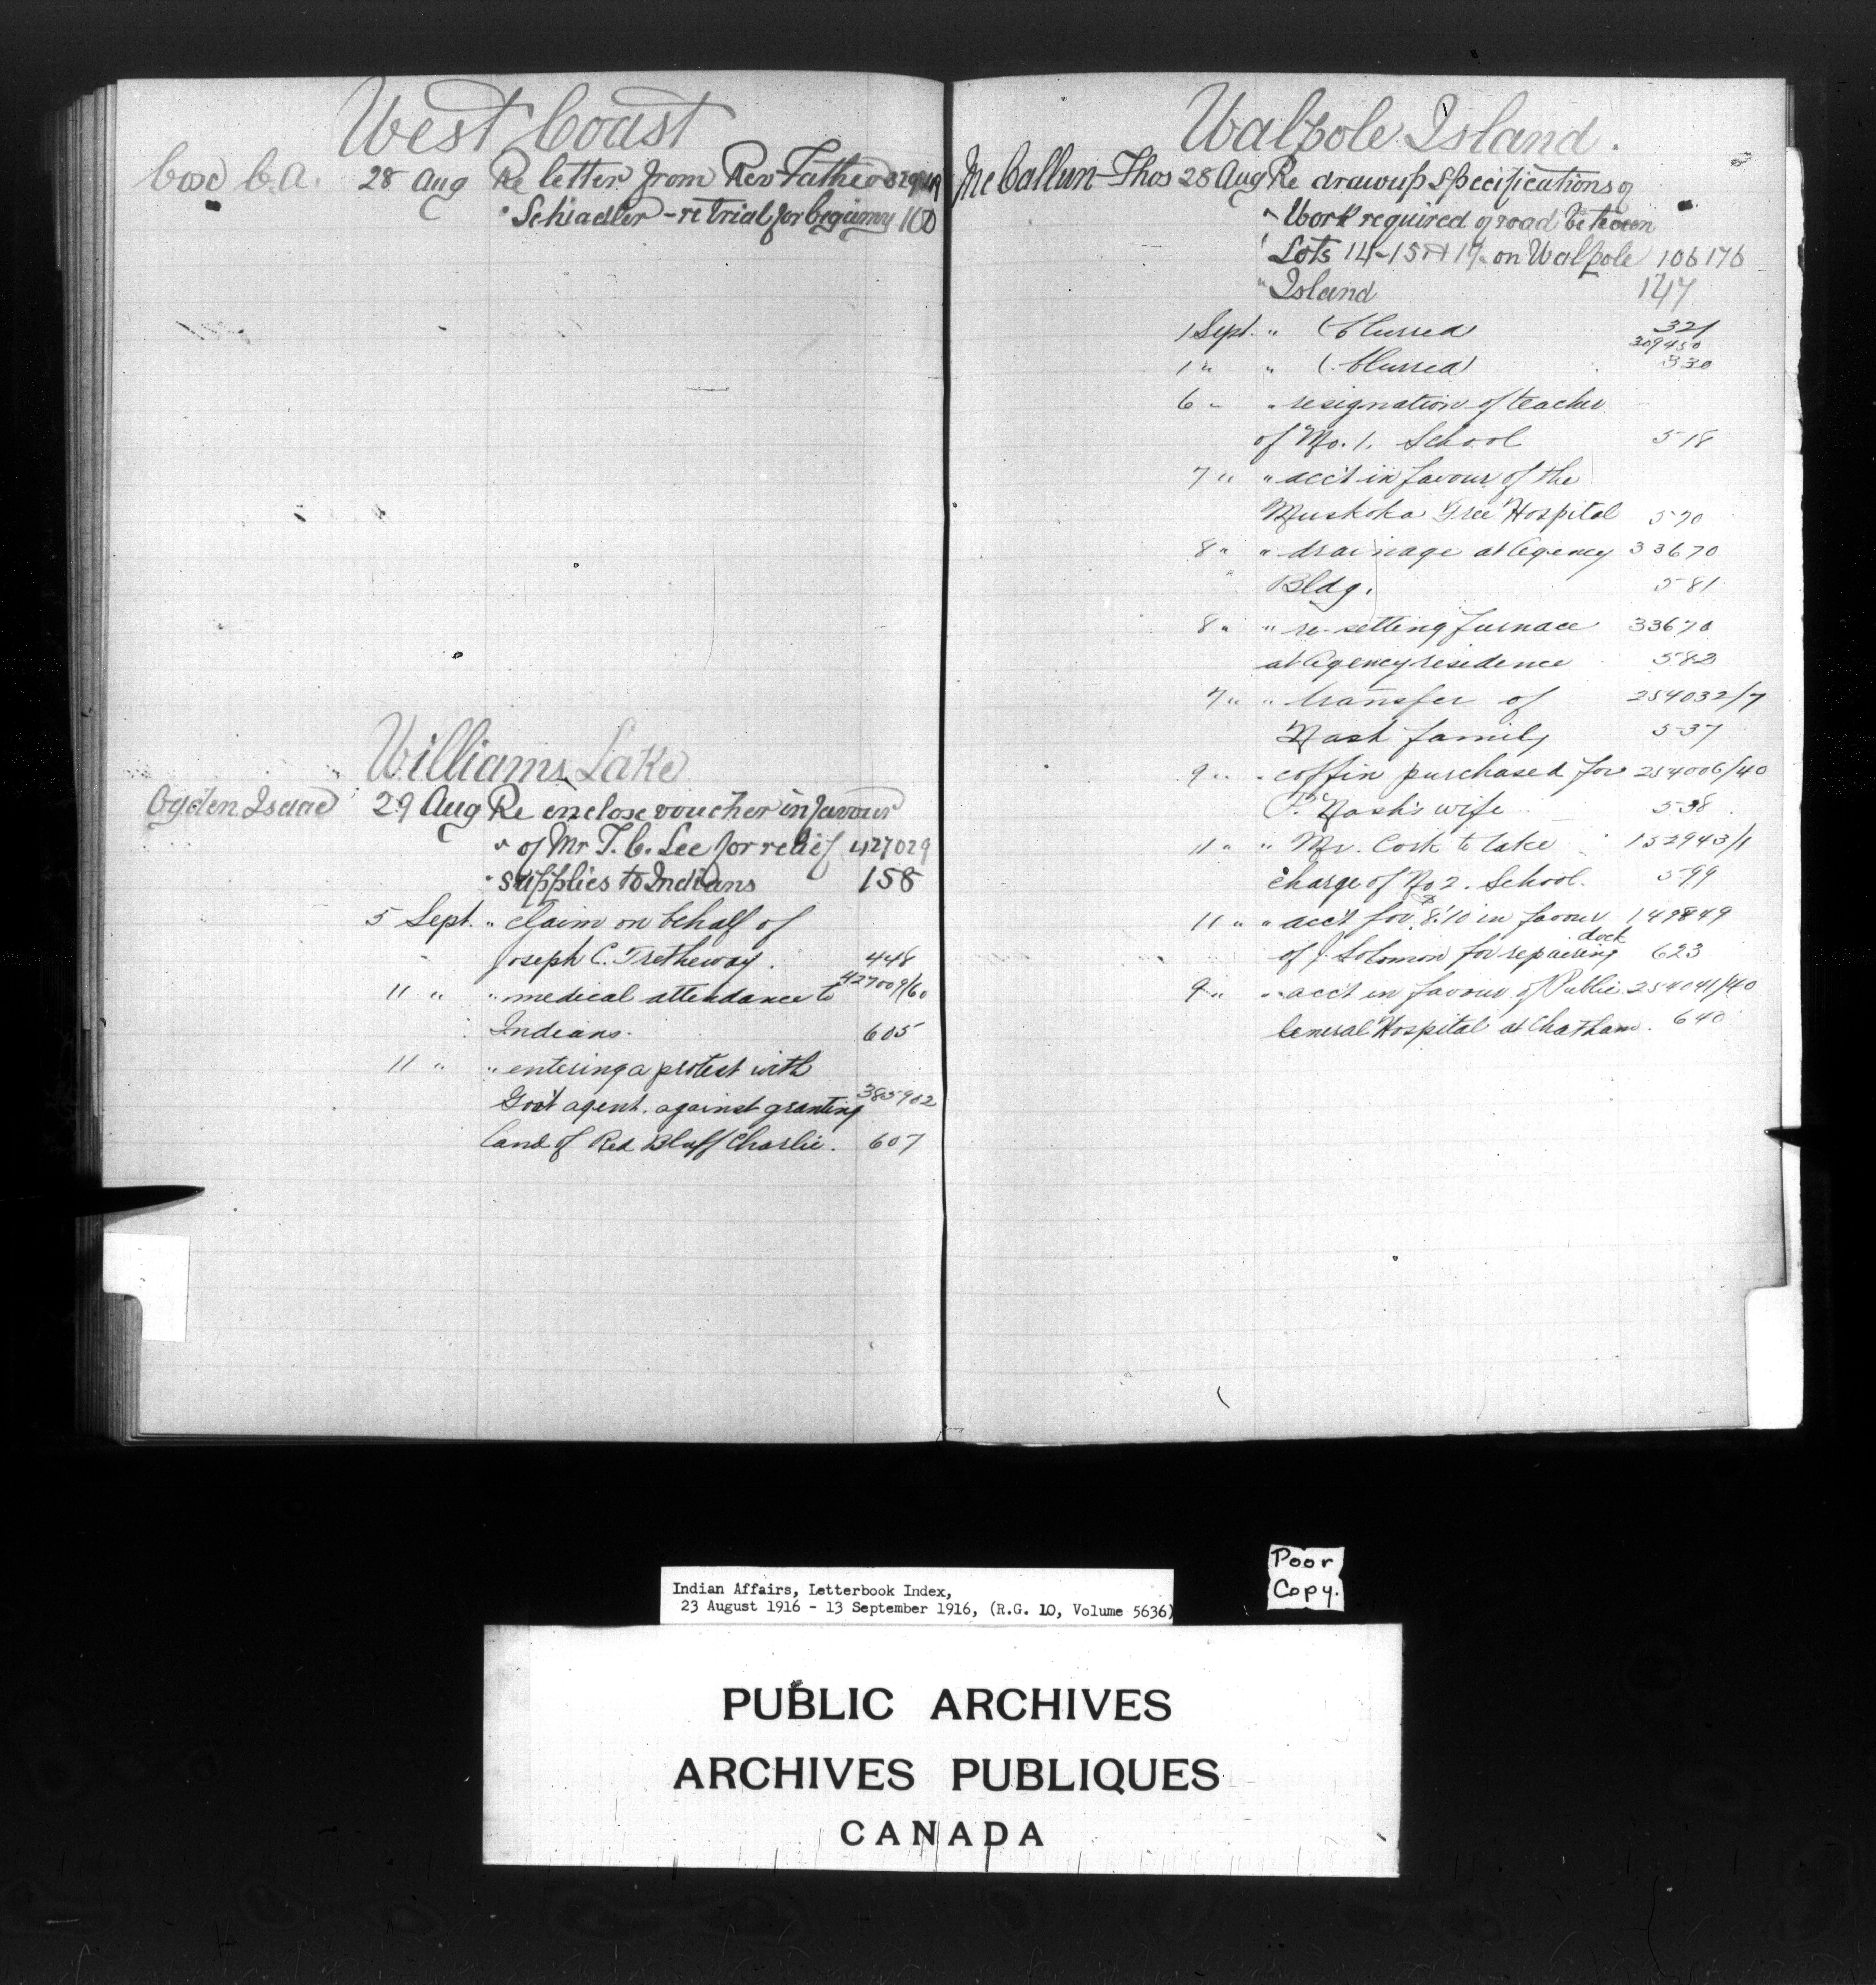 West Coast
Cox C.A. 28 Aug Re letter from Rev Father
" Schiadler - re trial for bigamy 100
Williams Lake
Ogden Isaac 29 Aug Re enclose voucher in favour
" of Mr T. C. Lee for relief 427029
" supplies to Indians 158
5 Sept. " claim on behalf of
Joseph C. Tretheway. 448
11 " " medical attendance to 427009/60
Indians. 605
11 " " entering a protest with
Gov't agent. against granting 385902
land of Red Bluff Charlie. 607
Walpole Island.
McCallum Thos 28 Aug Re drawup Specifications of
" Work required of road between
" Lots 14-15 & 17 on Walpole 106176
" Island 147
1 Sept. " (blurred) 321
309450
1 " " (blurred) 330
6 " " resignation of teacher
of No. 1. School 518
7 " " acc't in favour of the
Muskoka Free Hospital 570
8 " " drainage at Agency 33670
" Bldg. 581
8 " " re-setting furnace 33670
at Agency residence 582
7 " " transfer of 254032/7
Nash family 537
9 " " coffin purchased for 254006/40
F. Nash's wife 538
11 " " Mr. Cork to take 152943/1
charge of No 2. School. 599
11 " " acc't for 8.10 in favour 149849
of J. Solomon for repairing dock 623
9 " " acc't in favour of Public 254041/40
General Hospital at Chatham. 640
Poor
Copy.
Indian Affairs, Letterbook Index,
23 August 1916 - 13 September 1916, (R.G. 10, Volume 5636)
PUBLIC ARCHIVES
ARCHIVES PUBLIQUES
CANADA